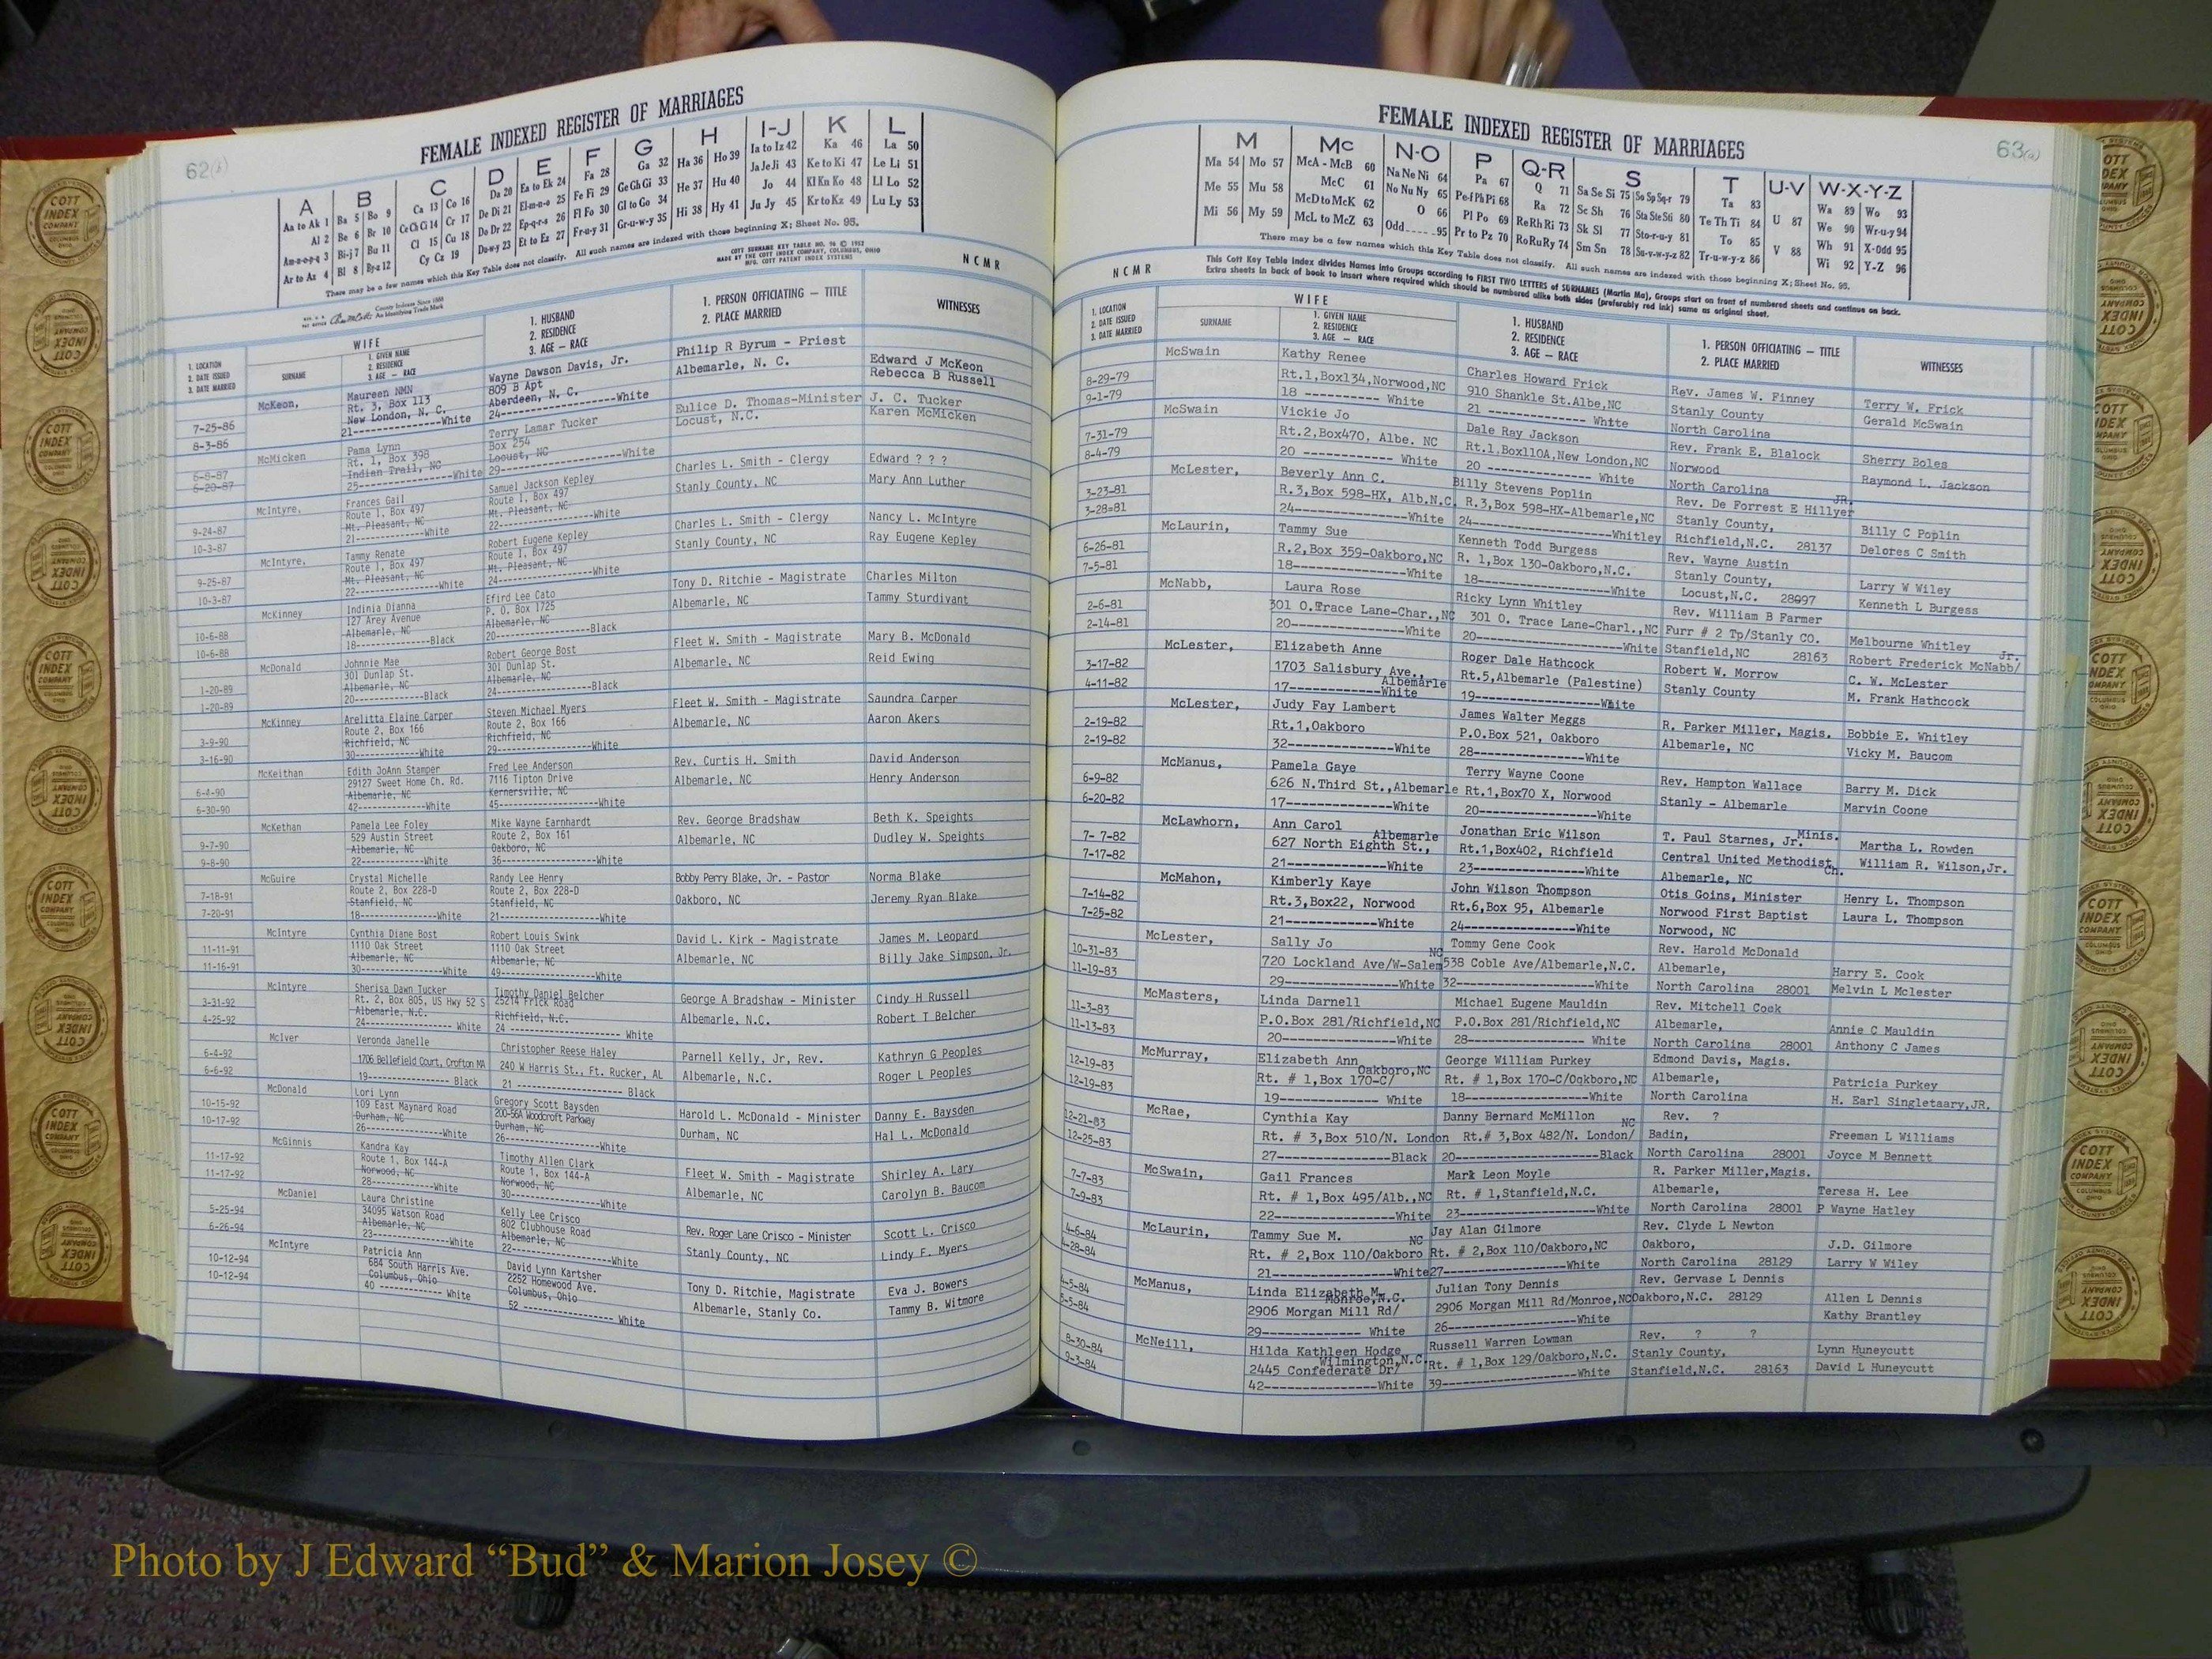 62(b)
FEMALE INDEXED REGISTER OF MARRIAGES
A B C D E F G H I-J K L
Aa to Ak 1 Ba 5 Bo 9 Ca 13 Co 16 Da 20 Ea to Ek 24 Fa 28 Ga 32 Ha 36 Ho 39 Ia to Iz 42 Ka 46 La 50
Al 2 Be 6 Br 10 Ce Ch Ci 14 Cr 17 De Di 21 El-m-n-o 25 Fe Fi 29 Ge Gh Gi 33 He 37 Hu 40 Ja Je Ji 43 Ke to Ki 47 Le Li 51
Am-n-o-p-q 3 Bi-j 7 Bu 11 Cl 15 Cu 18 Do Dr 22 Ep-q-r-s 26 Fl Fo 30 Gl to Go 34 Hi 38 Hy 41 Jo 44 Kl Kn Ko 48 Ll Lo 52
Ar to Az 4 Bl 8 By-z 12 Cy Cz 19 Du-w-y 23 Et to Ez 27 Fr-u-y 31 Gr-u-w-y 35 Ju Jy 45 Kr to Kz 49 Lu Ly 53
There may be a few names which this Key Table does not classify. All such names are indexed with those beginning X; Sheet No. 95.
COTT SURNAME KEY TABLE NO. 96 © 1952
MADE BY THE COTT INDEX COMPANY, COLUMBUS, OHIO
MFG. COTT PATENT INDEX SYSTEMS
County Indexes Since 1888
An Identifying Trade Mark
N C M R
1. LOCATION
2. DATE ISSUED
3. DATE MARRIED
WIFE
SURNAME
1. GIVEN NAME
2. RESIDENCE
3. AGE — RACE
1. HUSBAND
2. RESIDENCE
3. AGE — RACE
1. PERSON OFFICIATING — TITLE
2. PLACE MARRIED
WITNESSES
7-25-86
8-3-86
McKeon,
Maureen NMN
Rt. 3, Box 113
New London, N. C.
21---------------White
Wayne Dawson Davis, Jr.
809 B Apt
Aberdeen, N. C.
24---------------White
Philip R Byrum - Priest
Albemarle, N. C.
Edward J McKeon
Rebecca B Russell
6-8-87
6-20-87
McMicken
Pama Lynn
Rt. 1, Box 398
Indian Trail, NC
25---------------White
Terry Lamar Tucker
Box 254
Locust, NC
29---------------White
Eulice D. Thomas-Minister
Locust, N.C.
J. C. Tucker
Karen McMicken
9-24-87
10-3-87
McIntyre,
Frances Gail
Route 1, Box 497
Mt. Pleasant, NC
21---------------White
Samuel Jackson Kepley
Route 1, Box 497
Mt. Pleasant, NC
22---------------White
Charles L. Smith - Clergy
Stanly County, NC
Edward ? ? ?
Mary Ann Luther
9-25-87
10-3-87
McIntyre,
Tammy Renate
Route 1, Box 497
Mt. Pleasant, NC
22---------------White
Robert Eugene Kepley
Route 1, Box 497
Mt. Pleasant, NC
24---------------White
Charles L. Smith - Clergy
Stanly County, NC
Nancy L. McIntyre
Ray Eugene Kepley
10-6-88
10-6-88
McKinney
Indinia Dianna
127 Arey Avenue
Albemarle, NC
18---------------Black
Efird Lee Cato
P. O. Box 1725
Albemarle, NC
20---------------Black
Tony D. Ritchie - Magistrate
Albemarle, NC
Charles Milton
Tammy Sturdivant
1-20-89
1-20-89
McDonald
Johnnie Mae
301 Dunlap St.
Albemarle, NC
20---------------Black
Robert George Bost
301 Dunlap St.
Albemarle, NC
24---------------Black
Fleet W. Smith - Magistrate
Albemarle, NC
Mary B. McDonald
Reid Ewing
3-9-90
3-16-90
McKinney
Arelitta Elaine Carper
Route 2, Box 166
Richfield, NC
30---------------White
Steven Michael Myers
Route 2, Box 166
Richfield, NC
29---------------White
Fleet W. Smith - Magistrate
Albemarle, NC
Saundra Carper
Aaron Akers
6-4-90
6-30-90
McKeithan
Edith JoAnn Stamper
29127 Sweet Home Ch. Rd.
Albemarle, NC
42---------------White
Fred Lee Anderson
7116 Tipton Drive
Kernersville, NC
45---------------White
Rev. Curtis H. Smith
Albemarle, NC
David Anderson
Henry Anderson
9-7-90
9-8-90
McKethan
Pamela Lee Foley
529 Austin Street
Albemarle, NC
22---------------White
Mike Wayne Earnhardt
Route 2, Box 161
Oakboro, NC
36---------------White
Rev. George Bradshaw
Albemarle, NC
Beth K. Speights
Dudley W. Speights
7-18-91
7-20-91
McGuire
Crystal Michelle
Route 2, Box 228-D
Stanfield, NC
18---------------White
Randy Lee Henry
Route 2, Box 228-D
Stanfield, NC
21---------------White
Bobby Perry Blake, Jr. - Pastor
Oakboro, NC
Norma Blake
Jeremy Ryan Blake
11-11-91
11-16-91
McIntyre
Cynthia Diane Bost
1110 Oak Street
Albemarle, NC
30---------------White
Robert Louis Swink
1110 Oak Street
Albemarle, NC
49---------------White
David L. Kirk - Magistrate
Albemarle, NC
James M. Leopard
Billy Jake Simpson, Jr.
3-31-92
4-25-92
McIntyre
Sherisa Dawn Tucker
Rt. 2, Box 805, US Hwy 52 S
Albemarle, N.C.
24--------------- White
Timothy Daniel Belcher
25214 Frick Road
Richfield, N.C.
24 --------------- White
George A Bradshaw - Minister
Albemarle, N.C.
Cindy H Russell
Robert T Belcher
6-4-92
6-6-92
McIver
Veronda Janelle
1706 Bellefield Court, Crofton MA
19--------------- Black
Christopher Reese Haley
240 W Harris St., Ft. Rucker, AL
21 --------------- Black
Parnell Kelly, Jr, Rev.
Albemarle, N.C.
Kathryn G Peoples
Roger L Peoples
10-15-92
10-17-92
McDonald
Lori Lynn
109 East Maynard Road
Durham, NC
26---------------White
Gregory Scott Baysden
200-56A Woodcroft Parkway
Durham, NC
26---------------White
Harold L. McDonald - Minister
Durham, NC
Danny E. Baysden
Hal L. McDonald
11-17-92
11-17-92
McGinnis
Kandra Kay
Route 1, Box 144-A
Norwood, NC
28---------------White
Timothy Allen Clark
Route 1, Box 144-A
Norwood, NC
30---------------White
Fleet W. Smith - Magistrate
Albemarle, NC
Shirley A. Lary
Carolyn B. Baucom
5-25-94
6-26-94
McDaniel
Laura Christine
34095 Watson Road
Albemarle, NC
23---------------White
Kelly Lee Crisco
802 Clubhouse Road
Albemarle, NC
22---------------White
Rev. Roger Lane Crisco - Minister
Stanly County, NC
Scott L. Crisco
Lindy F. Myers
10-12-94
10-12-94
McIntyre
Patricia Ann
684 South Harris Ave.
Columbus, Ohio
40 --------------- White
David Lynn Kartsher
2252 Homewood Ave.
Columbus, Ohio
52 --------------- White
Tony D. Ritchie, Magistrate
Albemarle, Stanly Co.
Eva J. Bowers
Tammy B. Witmore
63(a)
FEMALE INDEXED REGISTER OF MARRIAGES
M Mc N-O P Q-R S T U-V W-X-Y-Z
Ma 54 Mo 57 McA - McB 60 Na Ne Ni 64 Pa 67 Q 71 Sa Se Si 75 So Sp Sq-r 79 Ta 83 U 87 Wa 89 Wo 93
Me 55 Mu 58 McC 61 No Nu Ny 65 Pe-f Ph Pi 68 Ra 72 Sc Sh 76 Sta Ste Sti 80 Te Th Ti 84 V 88 We 90 Wr-u-y 94
Mi 56 My 59 McD to McK 62 O 66 Pl Po 69 Re Rh Ri 73 Sk Sl 77 Sto-r-u-y 81 To 85 Wh 91 X-Odd 95
McL to McZ 63 Odd----95 Pr to Pz 70 Ro Ru Ry 74 Sm Sn 78 Su-v-w-y-z 82 Tr-u-w-y-z 86 Wi 92 Y-Z 96
There may be a few names which this Key Table does not classify. All such names are indexed with those beginning X; Sheet No. 95.
This Cott Key Table Index divides Names into Groups according to FIRST TWO LETTERS of SURNAMES (Martin Ma), Groups start on front of numbered sheets and continue on back.
Extra sheets in back of book to insert where required which should be numbered alike both sides (preferably red ink) same as original sheet.
N C M R
1. LOCATION
2. DATE ISSUED
3. DATE MARRIED
WIFE
SURNAME
1. GIVEN NAME
2. RESIDENCE
3. AGE — RACE
1. HUSBAND
2. RESIDENCE
3. AGE — RACE
1. PERSON OFFICIATING — TITLE
2. PLACE MARRIED
WITNESSES
8-29-79
9-1-79
McSwain
Kathy Renee
Rt.1,Box134,Norwood,NC
18 ---------- White
Charles Howard Frick
910 Shankle St.Albe,NC
21 ------------- White
Rev. James W. Finney
Stanly County
North Carolina
Terry W. Frick
Gerald McSwain
7-31-79
8-4-79
McSwain
Vickie Jo
Rt.2,Box470, Albe. NC
20 ------------ White
Dale Ray Jackson
Rt.1,Box110A,New London,NC
20 ------------- White
Rev. Frank E, Blalock
Norwood
North Carolina
Sherry Boles
Raymond L. Jackson
3-23-81
3-28=81
McLester,
Beverly Ann C.
R.3,Box 598-HX, Alb,N.C.
24---------------White
Billy Stevens Poplin
R.3,Box 598-HX-Albemarle,NC
24---------------Whitley
Rev. De Forrest E Hillyer JR.
Stanly County,
Richfield,N.C. 28137
Billy C Poplin
Delores C Smith
6-26-81
7-5-81
McLaurin,
Tammy Sue
R.2,Box 359-Oakboro,NC
18---------------White
Kenneth Todd Burgess
R. 1,Box 130-Oakboro,N.C.
18---------------White
Rev. Wayne Austin
Stanly County,
Locust,N.C. 28097
Larry W Wiley
Kenneth L Burgess
2-6-81
2-14-81
McNabb,
Laura Rose
301 O.Trace Lane-Char.,NC
20---------------White
Ricky Lynn Whitley
301 O. Trace Lane-Charl.,NC
20---------------White
Rev. William B Farmer
Furr # 2 Tp/Stanly CO.
Stanfield,NC 28163
Melbourne Whitley
Robert Frederick McNabb/ Jr.
3-17-82
4-11-82
McLester,
Elizabeth Anne
1703 Salisbury Ave., Albemarle
17-------------White
Roger Dale Hathcock
Rt.5,Albemarle (Palestine)
19---------------White
Robert W. Morrow
Stanly County
C. W. McLester
M. Frank Hathcock
2-19-82
2-19-82
McLester,
Judy Fay Lambert
Rt.1,Oakboro
32--------------White
James Walter Meggs
P.O.Box 521, Oakboro
28---------------White
R. Parker Miller, Magis.
Albemarle, NC
Bobbie E. Whitley
Vicky M. Baucom
6-9-82
6-20-82
McManus,
Pamela Gaye
626 N.Third St.,Albemarle
17--------------White
Terry Wayne Coone
Rt.1,Box70 X, Norwood
20---------------White
Rev. Hampton Wallace
Stanly - Albemarle
Barry M. Dick
Marvin Coone
7- 7-82
7-17-82
McLawhorn,
Ann Carol
627 North Eighth St., Albemarle
21-------------White
Jonathan Eric Wilson
Rt.1,Box402, Richfield
23---------------White
T. Paul Starnes, Jr. Minis.
Central United Methodist Ch.
Albemarle, NC
Martha L. Rowden
William R. Wilson,Jr.
7-14-82
7-25-82
McMahon,
Kimberly Kaye
Rt.3,Box22, Norwood
21-------------White
John Wilson Thompson
Rt.6,Box 95, Albemarle
24---------------White
Otis Goins, Minister
Norwood First Baptist
Norwood, NC
Henry L. Thompson
Laura L. Thompson
10-31-83
11-19-83
McLester,
Sally Jo
720 Lockland Ave/W-Salem NC
29---------------White
Tommy Gene Cook
538 Coble Ave/Albemarle,N.C.
32---------------White
Rev. Harold McDonald
Albemarle,
North Carolina 28001
Harry E. Cook
Melvin L Mclester
11-3-83
11-13-83
McMasters,
Linda Darnell
P.O.Box 281/Richfield,NC
20---------------White
Michael Eugene Mauldin
P.O.Box 281/Richfield,NC
28--------------- White
Rev. Mitchell Cook
Albemarle,
North Carolina 28001
Annie C Mauldin
Anthony C James
12-19-83
12-19-83
McMurray,
Elizabeth Ann
Rt. # 1,Box 170-C/ Oakboro,NC
19------------ White
George William Purkey
Rt. # 1,Box 170-C/Oakboro,NC
18---------------White
Edmond Davis, Magis.
Albemarle,
North Carolina
Patricia Purkey
H. Earl Singletaary,JR.
12-21-83
12-25-83
McRae,
Cynthia Kay
Rt. # 3,Box 510/N. London
27---------------Black
Danny Bernard McMillon
Rt.# 3,Box 482/N. London/ NC
20---------------Black
Rev. ?
Badin,
North Carolina 28001
Freeman L Williams
Joyce M Bennett
7-7-83
7-9-83
McSwain,
Gail Frances
Rt. # 1,Box 495/Alb.,NC
22---------------White
Mark Leon Moyle
Rt. # 1,Stanfield,N.C.
23---------------White
R. Parker Miller,Magis.
Albemarle,
North Carolina 28001
Teresa H. Lee
P Wayne Hatley
4-6-84
4-28-84
McLaurin,
Tammy Sue M.
Rt. # 2,Box 110/Oakboro NC
21---------------White
Jay Alan Gilmore
Rt. # 2,Box 110/Oakboro,NC
27---------------White
Rev. Clyde L Newton
Oakboro,
North Carolina 28129
J.D. Gilmore
Larry W Wiley
4-5-84
5-5-84
McManus,
Linda Elizabeth M.
2906 Morgan Mill Rd/ Monroe,N.C.
29------------- White
Julian Tony Dennis
2906 Morgan Mill Rd/Monroe,NC
26---------------White
Rev. Gervase L Dennis
Oakboro,N.C. 28129
Allen L Dennis
Kathy Brantley
8-30-84
9-3-84
McNeill,
Hilda Kathleen Hodge
2445 Confederate Dr/ Wilmington,N.C.
42---------------White
Russell Warren Lowman
Rt. # 1,Box 129/Oakboro,N.C.
39---------------White
Rev. ? ?
Stanly County,
Stanfield,N.C. 28163
Lynn Huneycutt
David L Huneycutt
COTT INDEX COMPANY COLUMBUS OHIO
Photo by J Edward “Bud” & Marion Josey ©